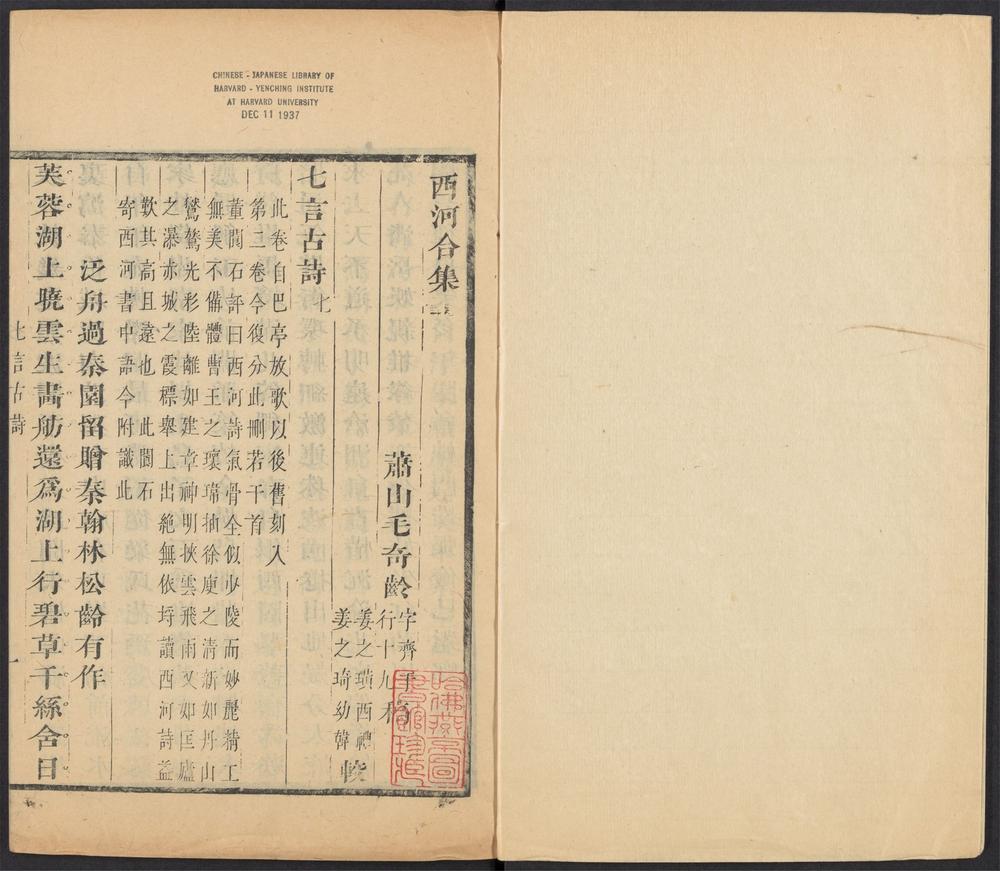 CHINESE - JAPANESE LIBRARY OF
HARVARD - YENCHING INSTITUTE
AT HARVARD UNIVERSITY
DEC 11 1937
西河合集
蕭山毛奇齡
字齊于
行十九
稿
姜之璜西禮
姜之琦幼韓
較
七言古詩七
此卷自巴亭放歌以後舊刻入
第二卷今復分此刪若干首
董閬石評曰西河詩氣骨全似少陵而妙麗精工
無美不備體曹王之瓌瑋抽徐庾之清新如丹山
鸑鷟光彩陸離如建章神明挾雲飛雨又如匡廬
之瀑赤城之霞標舉上出絶無依埒讀西河詩益
歎其高且遠也 此閬石
寄西河書中語今附識此
泛舟過秦園留贈秦翰林松齡有作
芙蓉湖上曉雲生畫舫還爲湖上行碧草千絲含日
七言古詩
一
哈佛燕京圖書館珍藏